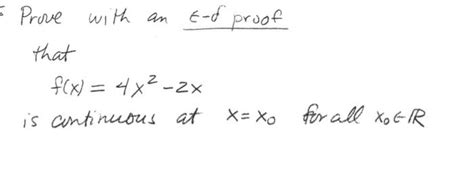 Prove with an ε-δ proof
that
f(x) = 4x² - 2x
is continuous at x = x₀ for all x₀ ∈ ℝ